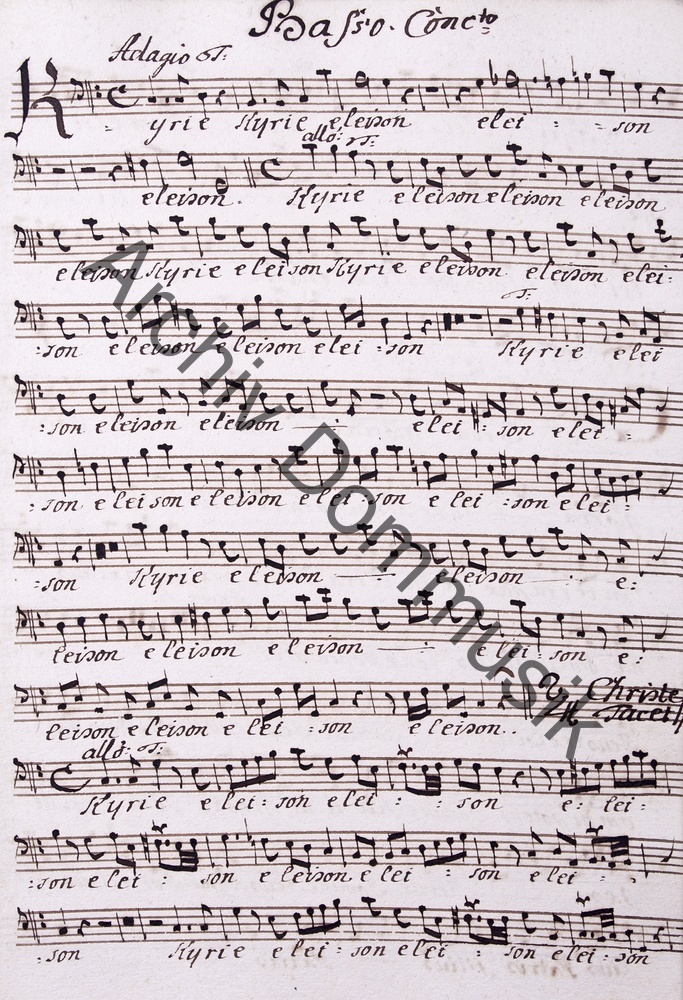 Basso. Conc:to
Adagio T:
Kyrie Kyrie eleison elei : : son
allo: T:
eleison. Kyrie eleison eleison eleison
eleison Kyrie eleison Kyrie eleison eleison elei:
T:
:son eleison eleison elei :son Kyrie elei
:son eleison eleison elei : son elei :
son eleison eleison elei :son elei :son elei :
:son Kyrie eleison eleison e:
leison eleison eleison elei : son e:
leison eleison elei :son eleison..
Christe
Tacet
allo: T:
Kyrie elei: son elei : : son e: lei:
son elei : son eleison elei : son elei :
:son Kyrie elei : son elei : son elei : son
Archiv Dommusik